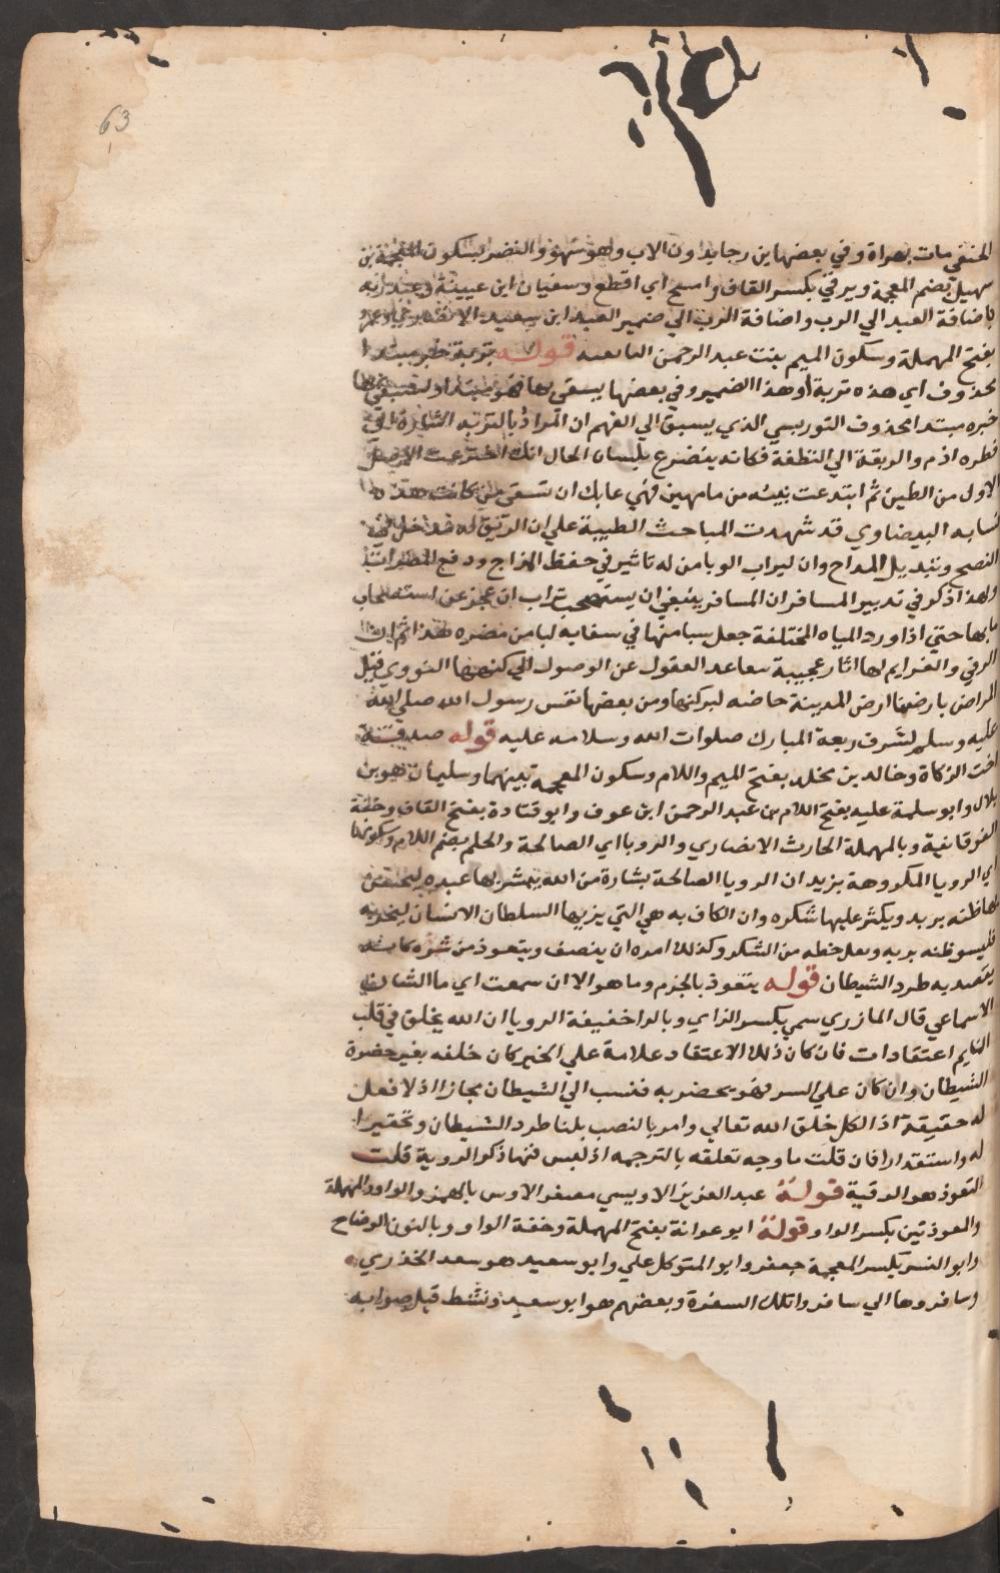 63
الحنفي مات بهراة وفي بعضها ابن رجا بدون الاب وهو سهو والنضر بسكون المعجمة بن
سهيل بضم المعجمة ويرقي بكسر القاف وامسح اي اقطع وسفيان ابن عيينة وعبد ربه
باضافة العبد الي الرب واضافة الرب الي ضمير العبد ابن سعيد الانصاري وعمرة
بفتح المهملة وسكون الميم بنت عبد الرحمن التابعية قوله تربة خبر مبتدا
محذوف اي هذه تربة او هذا الضمير وفي بعضها يسقى بها فهو مبتدا او يستشفى بها
خبره مبتدا محذوف التوربسي الذي يسبق الي الفهم ان المراد بالتربه الاشارة الي
فطره ادم والريقة الي النطفة فكانه يتضرع بلسان الحال انك اخترعت الاصل
الاول من الطين ثم ابتدعت بنيه من ما مهين فهي عابك ان تسقى من كانت هذه
نسابه البيضاوي قد شهدت المباحث الطيبة علي ان الريق له مدخل في
النصح وتبديل المداح وان ليراب الوبا من له تاثير في حفظ المزاج ودفع المضرات
ولهذا ذكر في تدبير المسافر ان المسافر ينبغي ان يستصحب تراب ان عجز عن استصحاب
مايها حتي اذا ورد المياه المختلفة جعل سيا منها في سقايه ليامن مضره هذا ثم ان
الرقي والغرايم لها اثار عجيبة تتقاعد العقول عن الوصول الي كنهها النووي قيل
المراض بارضنا ارض المدينة خاصه لبركتها ومن بعضها نفس رسول الله صلي الله
عليه وسلم لشرف ريقه المبارك صلوات الله وسلامه عليه قوله صدقته
اخت الزكاة وخالد بن مخلد بفتح الميم واللام وسكون المعجمه بينهما وسليمان هو بن
بلال وابو سلمة عليه بفتح اللام بن عبد الرحمن ابن عوف وابو قتادة بفتح القاف وخفة
الفوقانية وبالمهملة الحارث الانصاري والرويا اي الصالحة والحلم بضم اللام وسكونها
اي الرويا المكروهة يريد ان الرويا الصالحة بشارة من الله يبشر بها عبده ليحسن
بها ظنه بربه ويكثر عليها شكره وان الكاف به هي التي يزيها السلطان الانسان ليحزنه
فليسو ظنه بربه ويقل حظه من الشكر وكذلك امره ان ينصف ويتعوذ من شره كانه
يقصد به طرد الشيطان قوله يتعوذ بالجزم وما هو الا ان سمعت اي ما الشان
الاسماعي قال المازري سمي بكسر الزاي وبالراخفيفة الرويا ان الله يخلق في قلب
النايم اعتقادات فان كان ذلك الاعتقاد علامة علي الخير كان خلقه بغير حضرة
الشيطان وان كان علي السر فهو بحضر به فنسب الي الشيطان مجازا اذ لا فعل
له حقيقة اذ الكل خلق الله تعالي وامر بالنصب بلنا طرد الشيطان وتحقيرا
له واستقدارا فان قلت ما وجه تعلقه بالترجمه اذ ليس فيها ذكر الروية قلت
التعوذ هو الرقية قوله عبد العزيز الاويسي مصغر الاوس بالهمز والواو والمهملة
والمعوذتين بكسر الواو قوله ابو عوانة بفتح المهملة وخفة الواو وبالنون الوضاح
وابو البشر بكسر المعجمة جعفر وابو المتوكل علي وابو سعيد هو سعد الخدري
وسافروها الي سافروا تلك السفرة وبعضهم هو ابو سعيد ونشط قيل صوابه